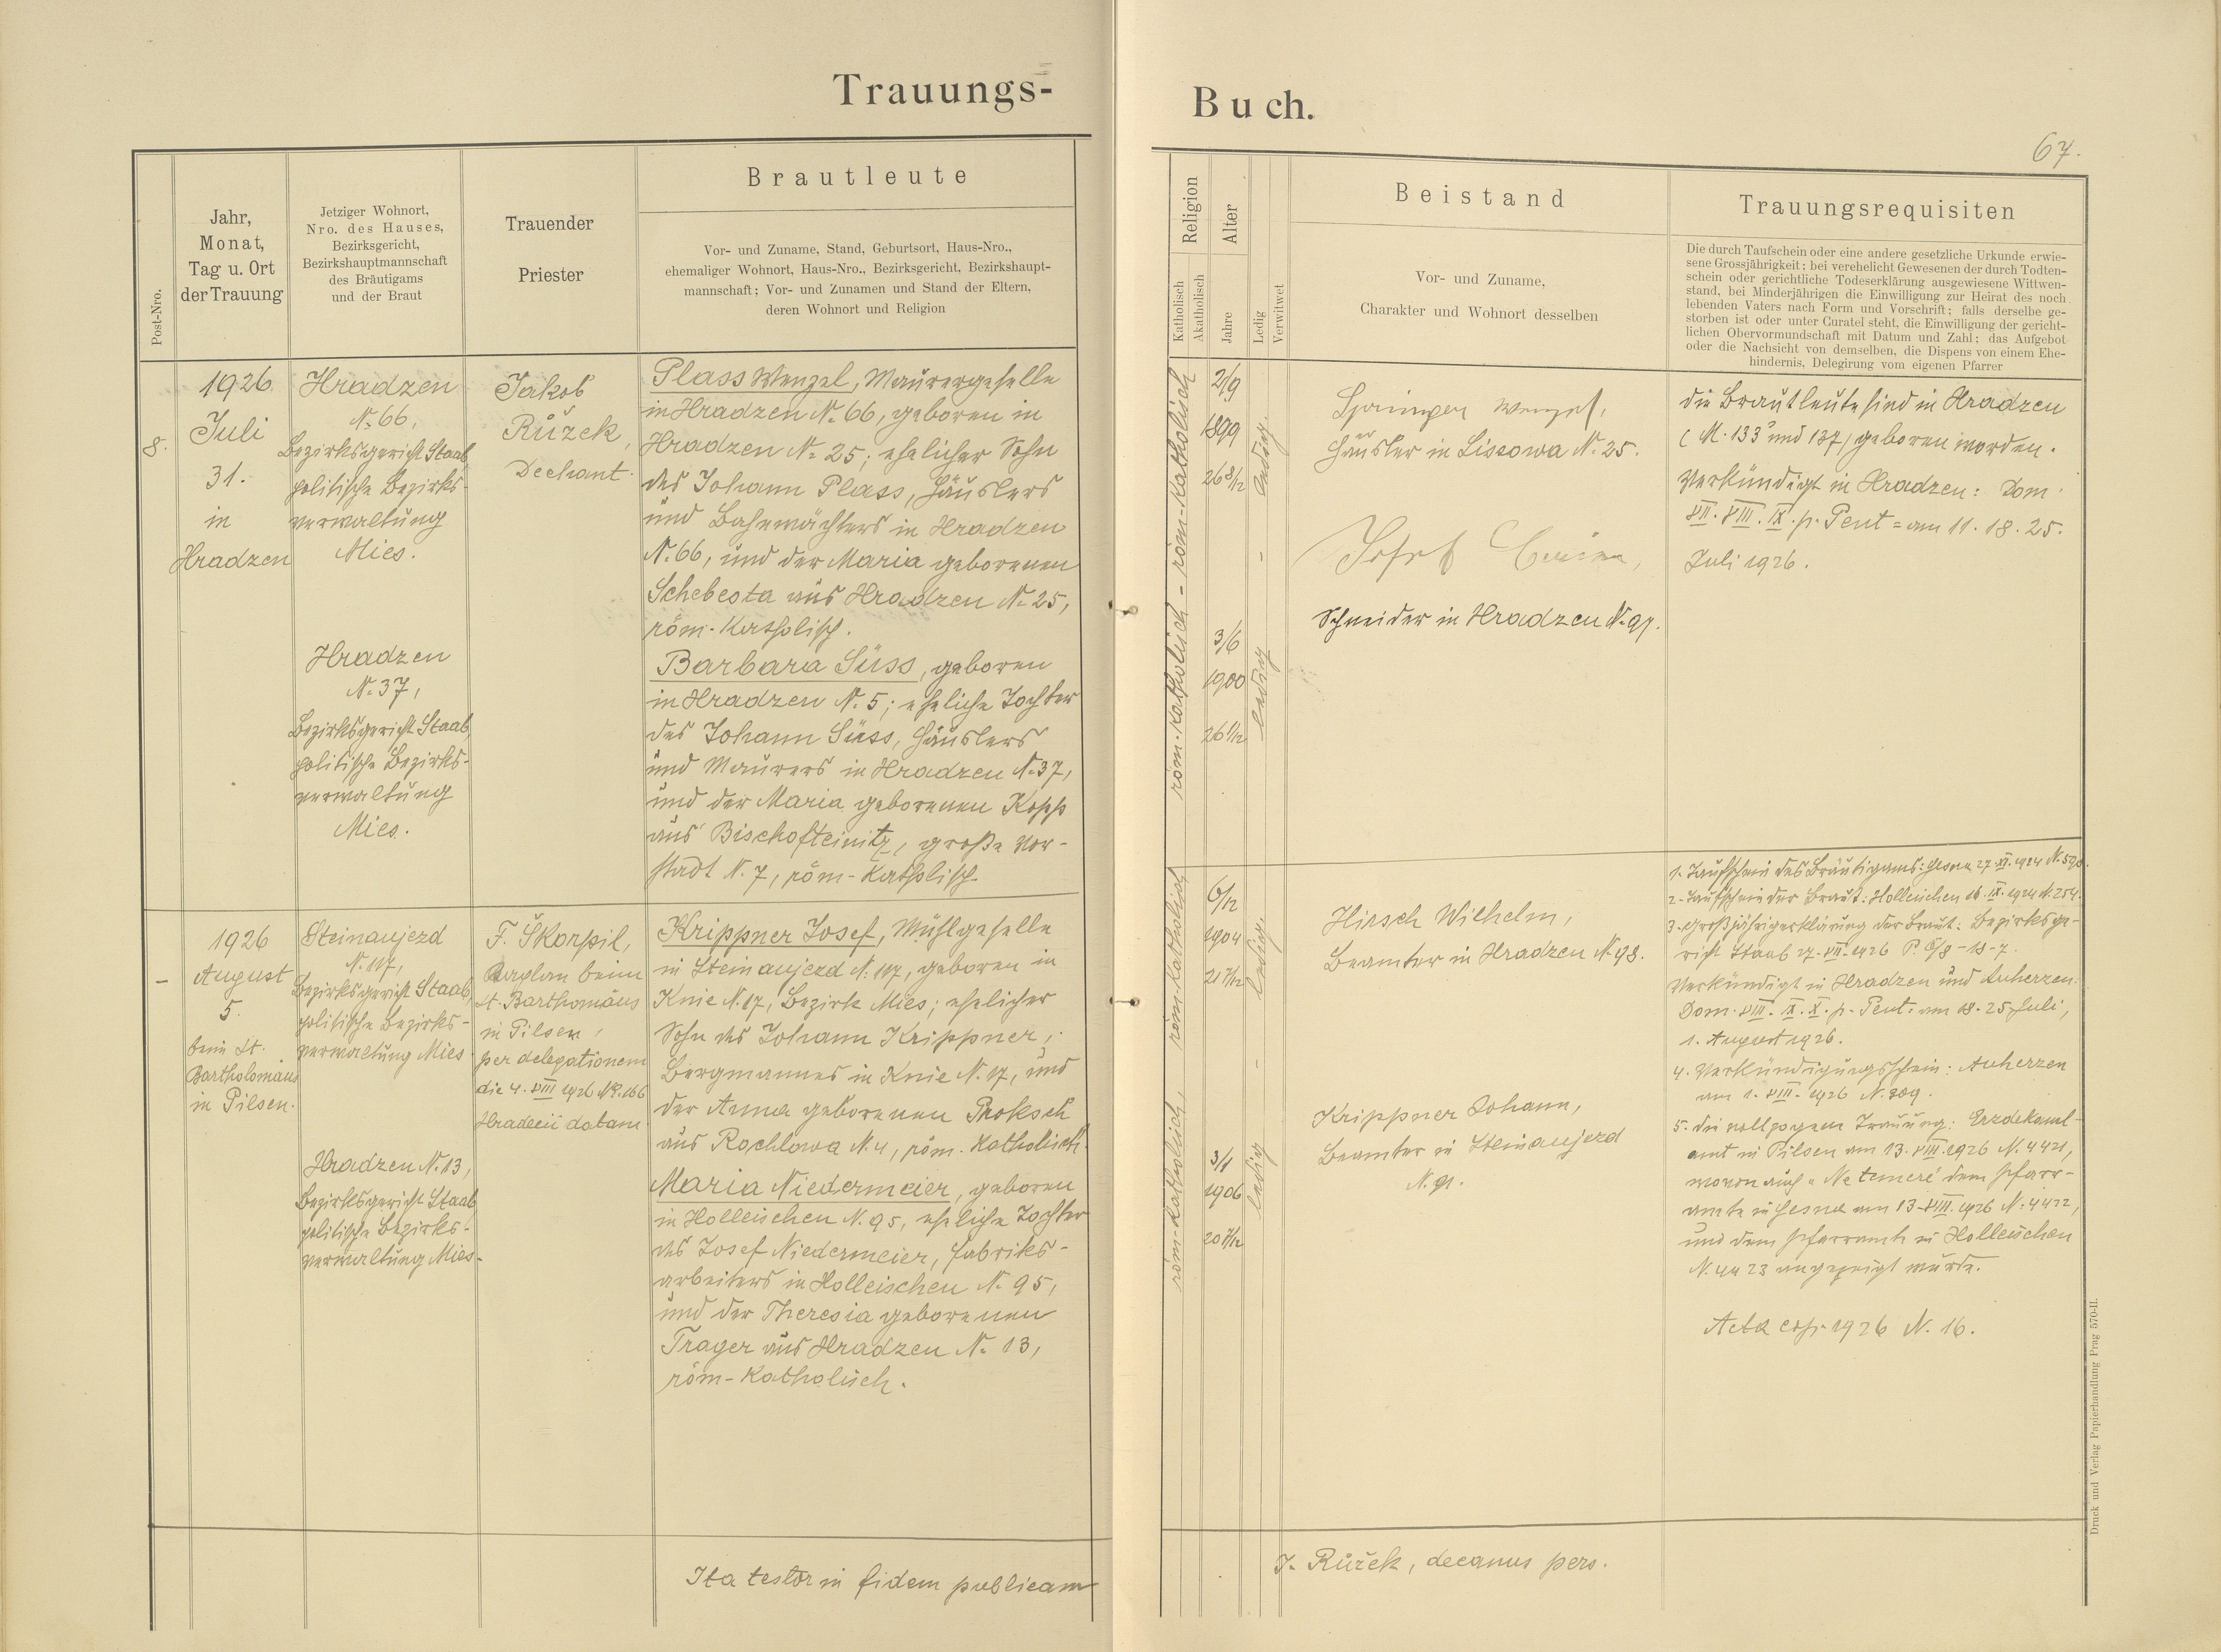 Trauungs-
Buch.
67.
Post-Nro.
Jahr,
Monat,
Tag u. Ort
der Trauung
Jetziger Wohnort,
Nro. des Hauses,
Bezirksgericht,
Bezirkshauptmannschaft
des Bräutigams
und der Braut
Trauender
Priester
Brautleute
Vor- und Zuname, Stand, Geburtsort, Haus-Nro.,
ehemaliger Wohnort, Haus-Nro., Bezirksgericht, Bezirkshaupt-
mannschaft; Vor- und Zunamen und Stand der Eltern,
deren Wohnort und Religion
Religion
Katholisch
Akatholisch
Alter
Jahre
Ledig
Verwitwet
Beistand
Vor- und Zuname,
Charakter und Wohnort desselben
Trauungsrequisiten
Die durch Taufschein oder eine andere gesetzliche Urkunde erwie-
sene Grossjährigkeit; bei verehelicht Gewesenen der durch Todten-
schein oder gerichtliche Todeserklärung ausgewiesene Wittwen-
stand, bei Minderjährigen die Einwilligung zur Heirat des noch
lebenden Vaters nach Form und Vorschrift; falls derselbe ge-
storben ist oder unter Curatel steht, die Einwilligung der gericht-
lichen Obervormundschaft mit Datum und Zahl; das Aufgebot
oder die Nachsicht von demselben, die Dispens von einem Ehe-
hindernis, Delegirung vom eigenen Pfarrer
8.
1926
Juli
31.
in
Hradzen
Hradzen
N. 66,
Bezirksgericht Staab,
politische Bezirks-
verwaltung
Mies.
Hradzen
N. 37,
Bezirksgericht Staab,
politische Bezirks-
verwaltung
Mies.
Jakob
Růžek,
Dechant.
Plass Wenzel, Maurergeselle
in Hradzen N. 66, geboren in
Hradzen N. 25; ehelicher Sohn
des Johann Plass, Häuslers
und Bahnwächters in Hradzen
N. 66, und der Maria geborenen
Schebesta aus Hradzen N. 25,
röm.-katholisch.
Barbara Süss, geboren
in Hradzen N. 5; eheliche Tochter
des Johann Süss, Häuslers
und Maurers in Hradzen N. 37,
und der Maria geborenen Kopp
aus Bischofteinitz, große Vor-
stadt N. 7, röm-katholisch.
röm.-katholisch - röm-katholisch
2/9
1899
26
ledig.
-
3/6
1900
26 1/12
ledig
Springer Wenzel,
Häusler in Lissowa N. 25.
Josef
Schneider in Hradzen N. 97.
die Brautleute sind in Hradzen
geboren worden.
Verkündigt in Hradzen: Dom.
VII. VIII. IX. p. Pent = am 11. 18. 25.
Juli 1926.
-
1926
August
5.
beim St.
Bartholomäus
in Pilsen.
Steinaujezd
N. 117,
Bezirksgericht Staab,
politische Bezirks-
verwaltung Mies
Hradzen N. 13,
Bezirksgericht Staab
politische Bezirks-
verwaltung Mies.
F. Škorpil,
Kaplan beim
St. Barthomäus
in Pilsen,
per delegationem
die 4. VIII 1926 N. 166
datam
Krippner Josef, Mühlgeselle
in Steinaujezd N. 117, geboren in
Knie N. 17, Bezirk Mies; ehelicher
Sohn des Johann Krippner,
Bergmannes in Knie N. 17, und
der Anna geborenen Proksch
aus Rochlowa N. 4, röm. katholisch.
Maria Niedermeier, geboren
in Holleischen N. 95, eheliche Tochter
des Josef Niedermeier, Fabriks-
arbeiters in Holleischen N. 95,
und der Theresia geborenen
Trager aus Hradzen N. 13,
röm-katholisch.
röm-katholisch, röm. katholisch
6/12
1904
21 7/12
ledig.
-
3/1
1906
20 7/12
ledig
Hirsch Wilhelm,
Beamter in Hradzen N. 98.
Krippner Johann,
Beamter in Steinaujezd
N. 91.
1. Taufschein des Bräutigams: 27. XI. 1924
2. Taufschein der Braut: Holleischen 16. IX. 1924 N. 254.
3. Großjährigerklärung der Braut: Bezirksge-
richt Staab 27. VII. 1926
Verkündigt in Hradzen und Auherzen.
Dom. VIII. IX. X. p. Pent. am 18. 25. Juli,
1. August 1926.
4. Verkündigungsschein: Auherzen
am 1. VIII. 1926 N. 309.
5. die vollzogene Trauung: Erzdekanal-
amt in Pilsen am 13. VIII. 1926 N. 4421,
wovon auch "Ne temere" dem Pfarr-
amte in am 13. VIII. 1926 N. 4422,
und dem Pfarramte in Holleischen
N. 4423 angezeigt wurde.
Acta cop. 1926 N. 16.
Ita testor in fidem publicam
J. Růžek, decanus pers.
Druck und Verlag Papierhandlung Prag 570-II.